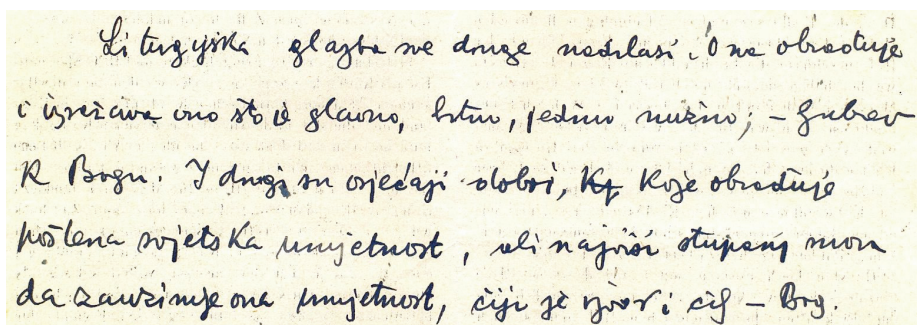 Liturgijska glazba sve druge nadilasi. Ona obrađuje
i izražava ono što je glavno, bitno, jedino nužno; – ljubav
k Bogu. I drugi su osjećaji dobri, koje obrađuje
poštena svjetska umjetnost, ali najviši stupanj mora
da zauzimje ona umjetnost, čiji je izvor i cilj – Bog.